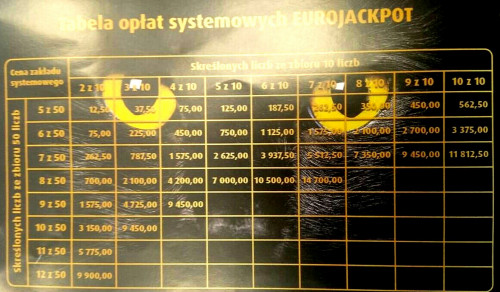 Tabela opłat systemowych EUROJACKPOT
Skreślonych liczb ze zbioru 10 liczb
Cena zakładu systemowego 2 z 10 3 z 10 4 z 10 5 z 10 6 z 10 7 z 10 8 z 10 9 z 10 10 z 10
skreślonych liczb ze zbioru 50 liczb
5 z 50 12,50 37,50 75,00 125,00 187,50 262,50 350,00 450,00 562,50
6 z 50 75,00 225,00 450,00 750,00 1 125,00 1 575,00 2 100,00 2 700,00 3 375,00
7 z 50 262,50 787,50 1 575,00 2 625,00 3 937,50 5 512,50 7 350,00 9 450,00 11 812,50
8 z 50 700,00 2 100,00 4 200,00 7 000,00 10 500,00 14 700,00
9 z 50 1 575,00 4 725,00 9 450,00
10 z 50 3 150,00 9 450,00
11 z 50 5 775,00
12 z 50 9 900,00